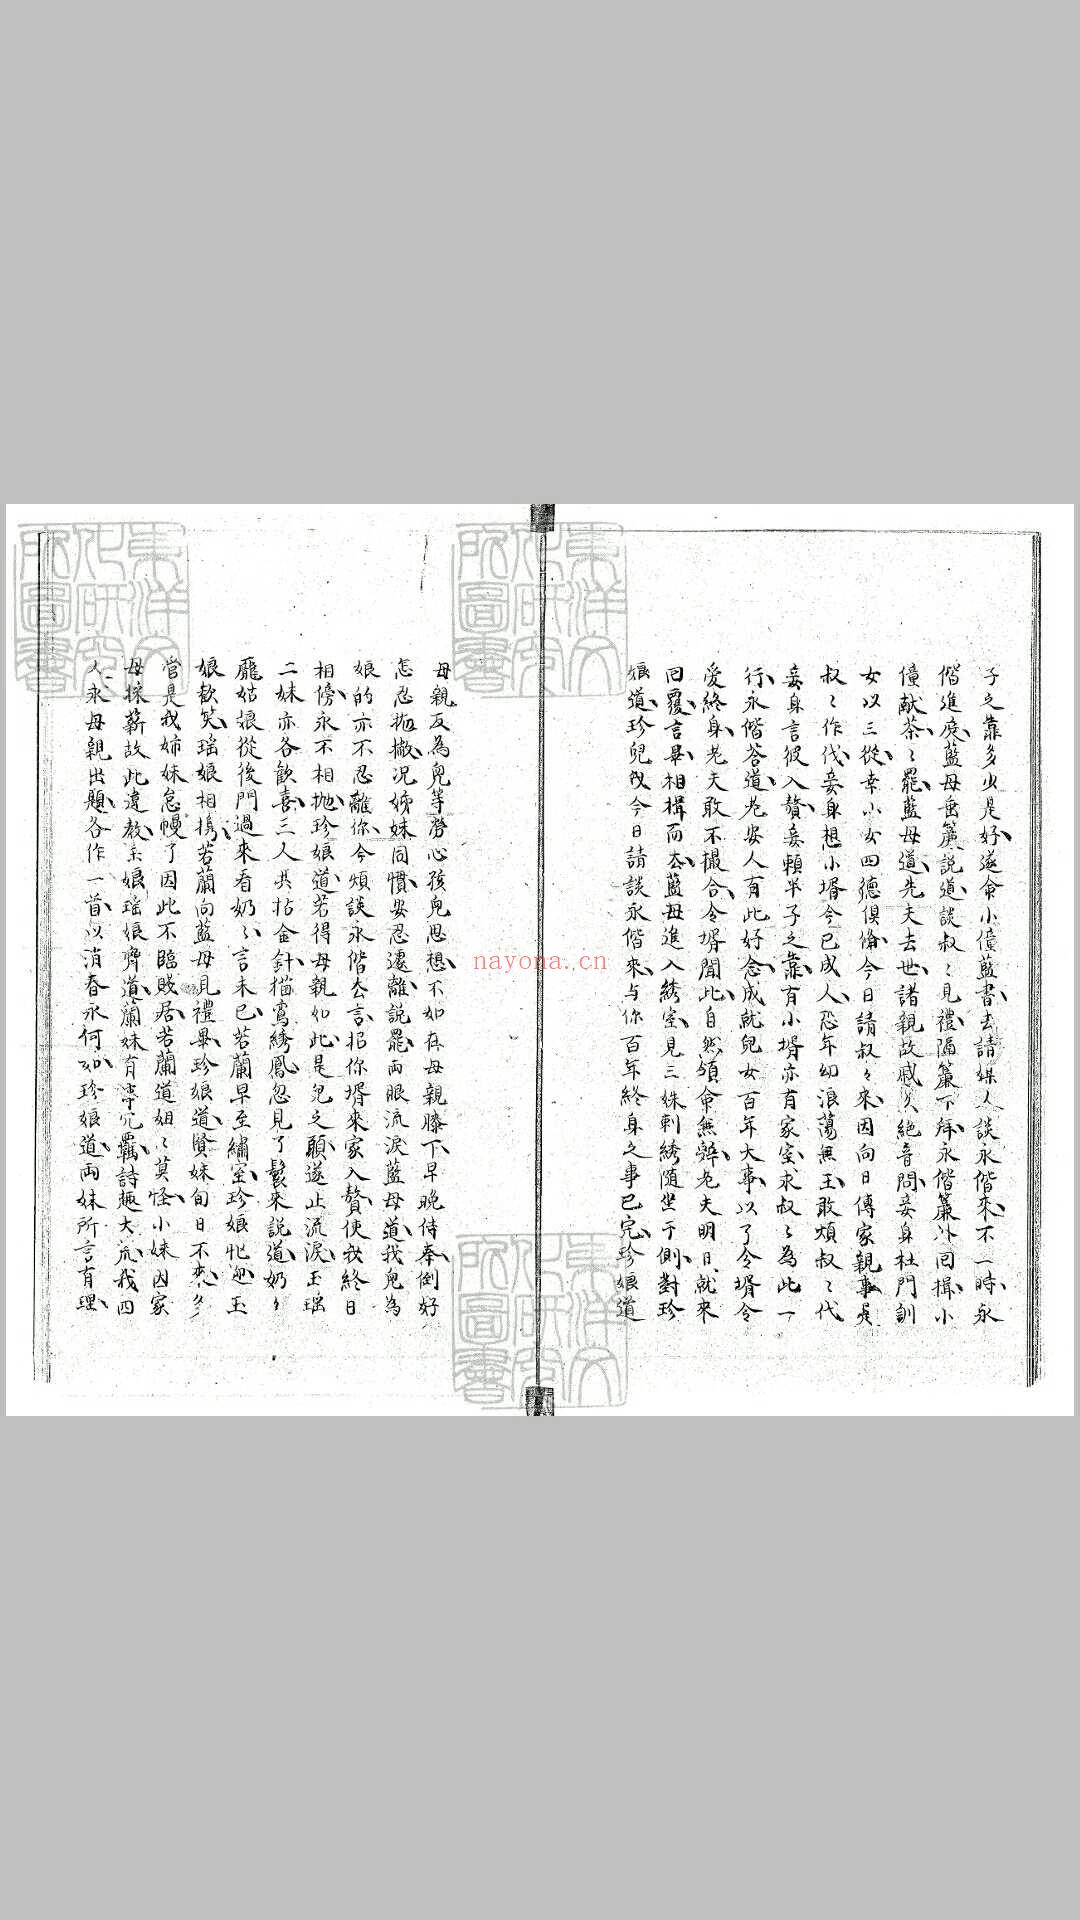 子之靠多少是好遂命小僮藍書去請媒人談永偕來不一時永
偕進庭藍母垂簾說道談叔〻見禮隔簾下拜永偕簾外回揖小
僮献茶〻罷藍母道先夫去世諸親故戚久絕音問妾身杜門訓
女以三從幸小女四德俱脩今日請叔〻來因向日傳家親事是
叔〻作伐妾身想小壻今已成人恐年幼浪蕩無玉敢煩叔〻代
妾身言彼入贅妾賴半子之靠有小壻亦有家室求叔〻為此一
行永偕荅道老安人有此好念成就兒女百年大事以了令壻令
愛終身老夫敢不撮合令壻聞此自然領命無辭老夫明日就來
回覆言畢相揖而去藍母進入綉室見三姝刺綉随坐于側對珍
娘道珍兒我今日請談永偕來与你百年終身之事已完珍娘道
母親反為兒等勞心孩兒思想不如在母親膝下早晚侍奉倒好
怎忍抛撇况姊妹同慣安忍遽離說罷両眼流淚藍母道我兒為
娘的亦不忍離你今煩談永偕去言招你壻來家入贅使我終日
相傍永不相抛珍娘道若得母親如此是兒之願遂止流淚玉瑶
二妹亦各歡喜三人共拈金針描鸞綉鳳忽見了鬟來說道奶〻
龐姑娘從後門過來看奶〻言未已若蘭早至繡室珍娘忙迎玉
娘歡笑瑶娘相携若蘭向藍母見禮畢珍娘道賢妹旬日不來多
管是我姊妹怠慢了因此不臨賤居若蘭道姐〻莫怪小妹因家
母採薪故此違教玉娘瑶娘齊道蘭妹有事冗羈詩趣大荒我四
人永母親出題各作一首以消春永何如珍娘道両妹所言有理
nayona.cn